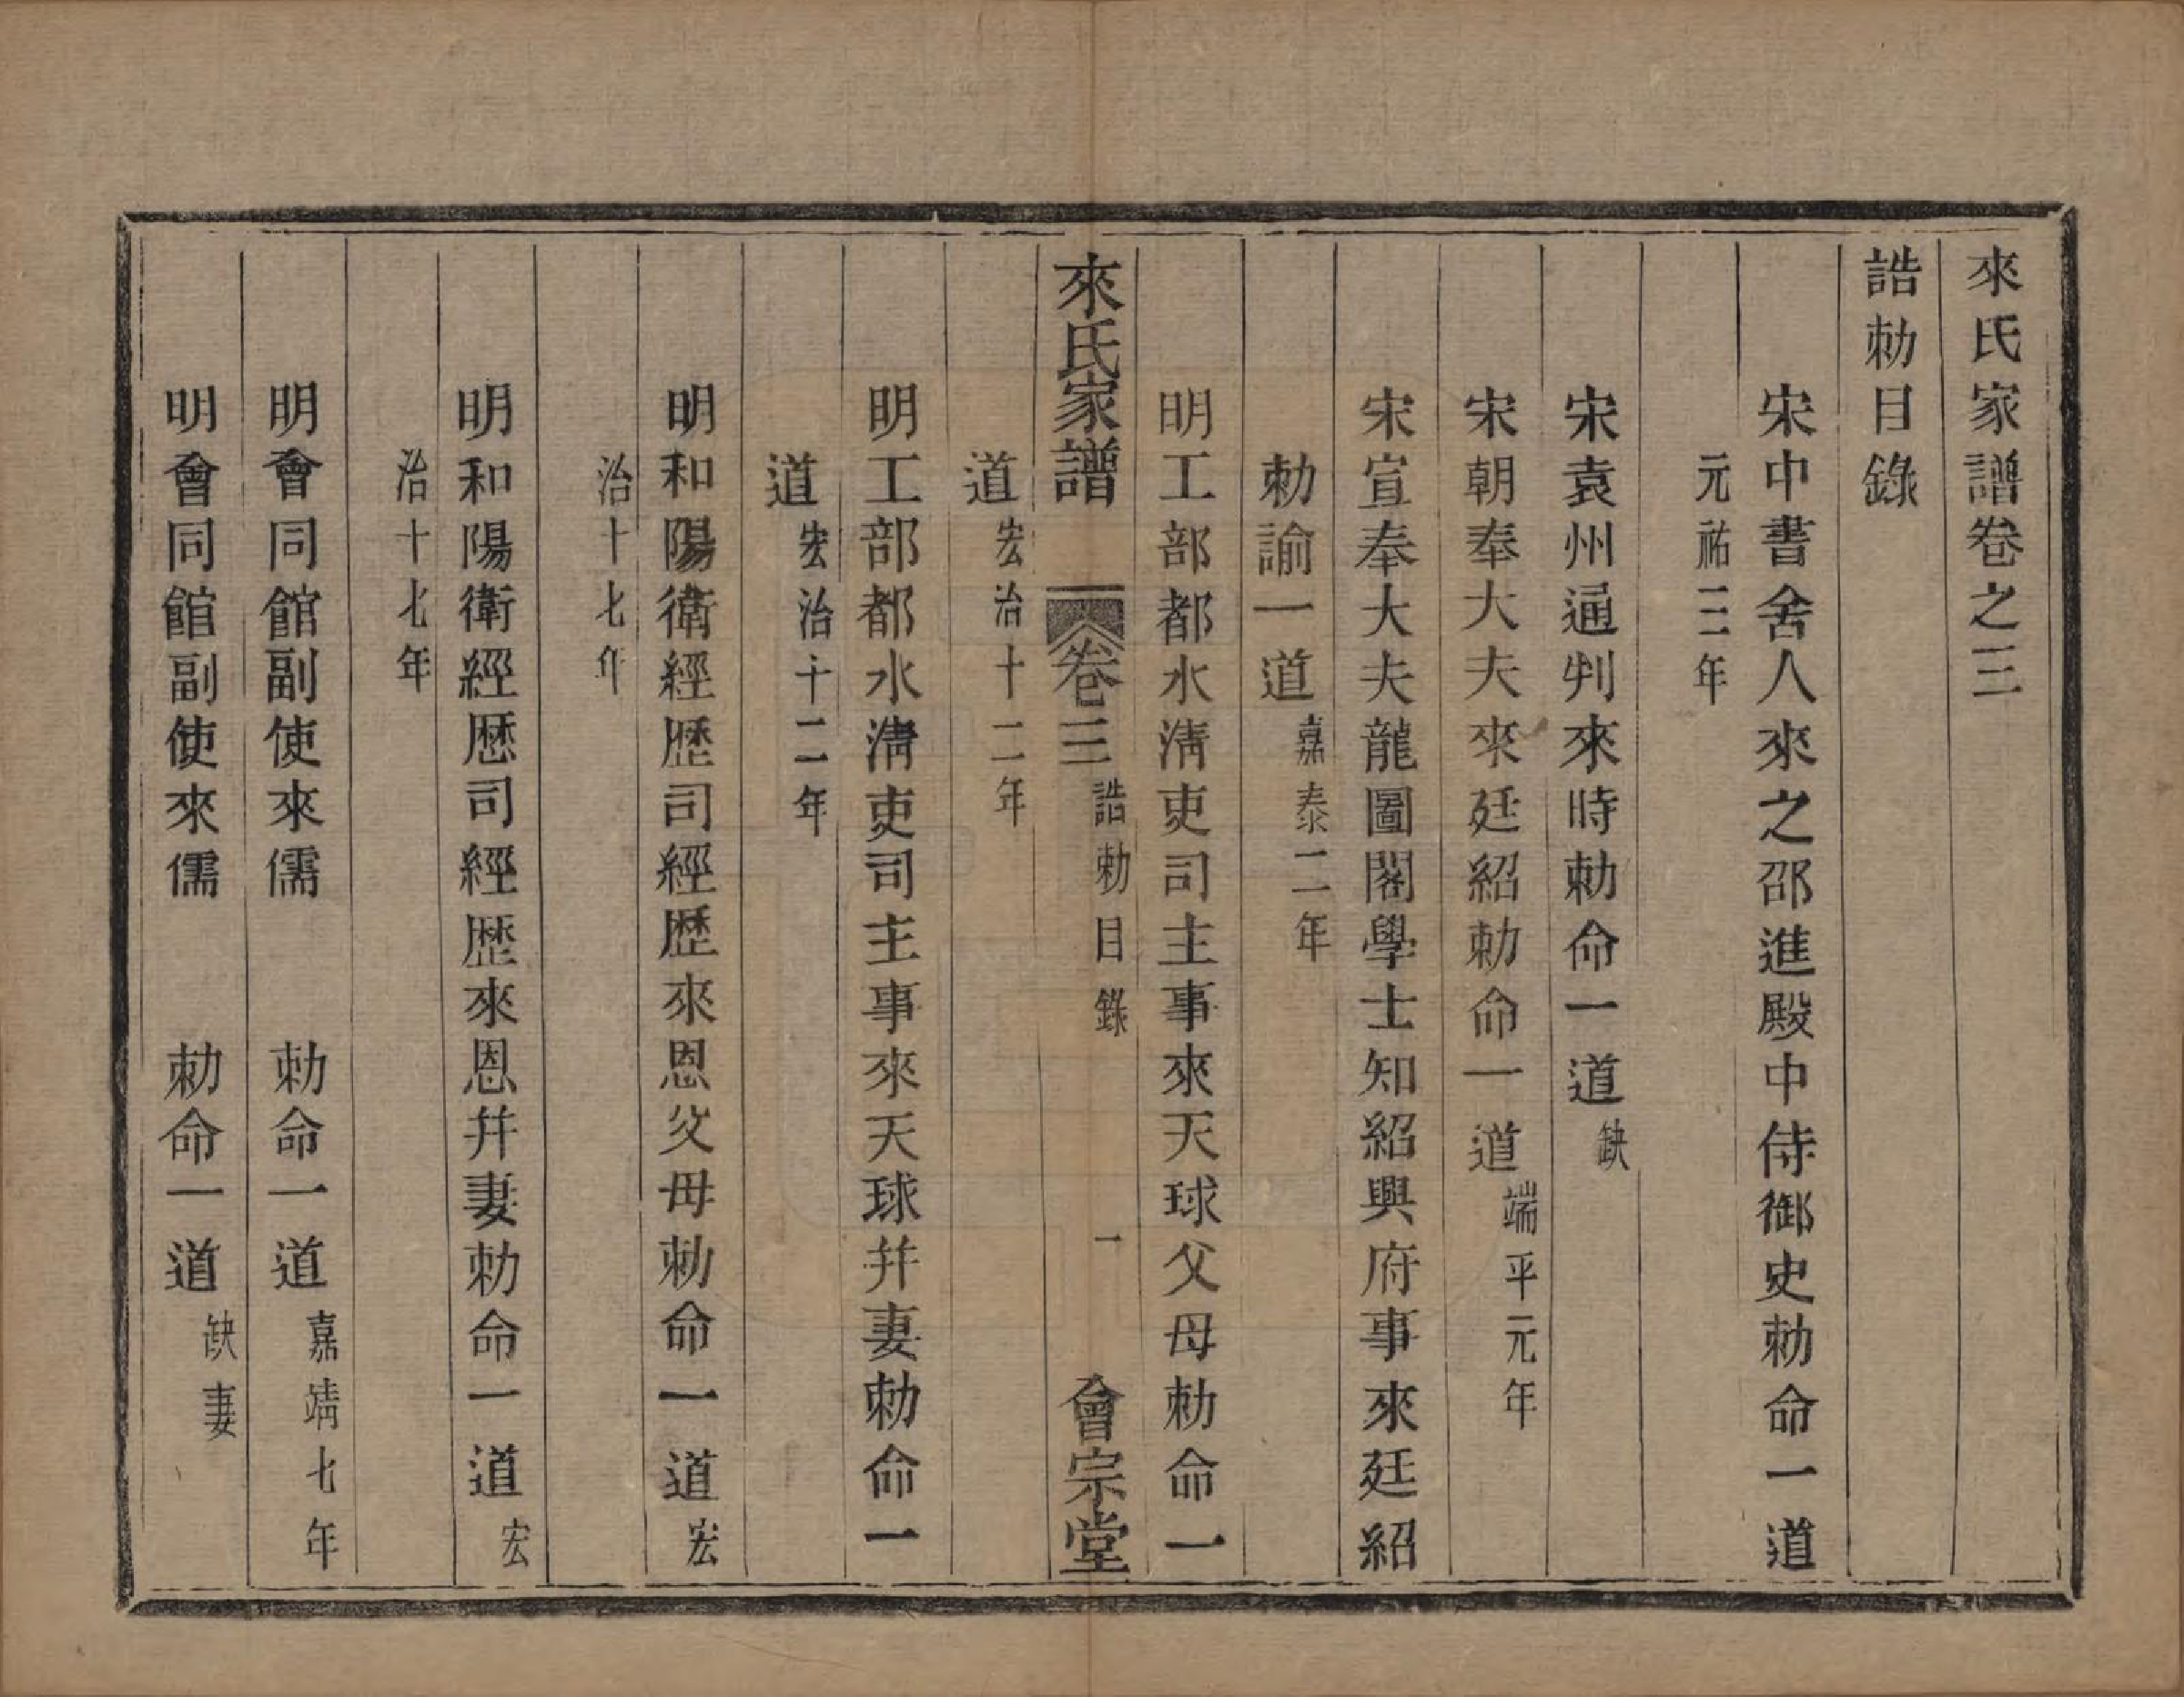 來氏家譜卷之三
誥勅目錄
宋中書舍人來之邵進殿中侍御史勅命一道
元祐三年
宋袁州通判來時勅命一道缺
宋朝奉大夫來廷紹勅命一道端平元年
宋宣奉大夫龍圖閣學士知紹興府事來廷紹
勅諭一道嘉泰二年
明工部都水淸吏司主事來天球父母勅命一
道宏治十二年
來氏家譜 卷三 誥勅目錄 一 會宗堂
明工部都水淸吏司主事來天球并妻勅命一
道宏治十二年
明和陽衛經歷司經歷來恩父母勅命一道宏
治十七年
明和陽衛經歷司經歷來恩并妻勅命一道宏
治十七年
明會同館副使來儒 勅命一道嘉靖七年
明會同館副使來儒 勅命一道缺妻